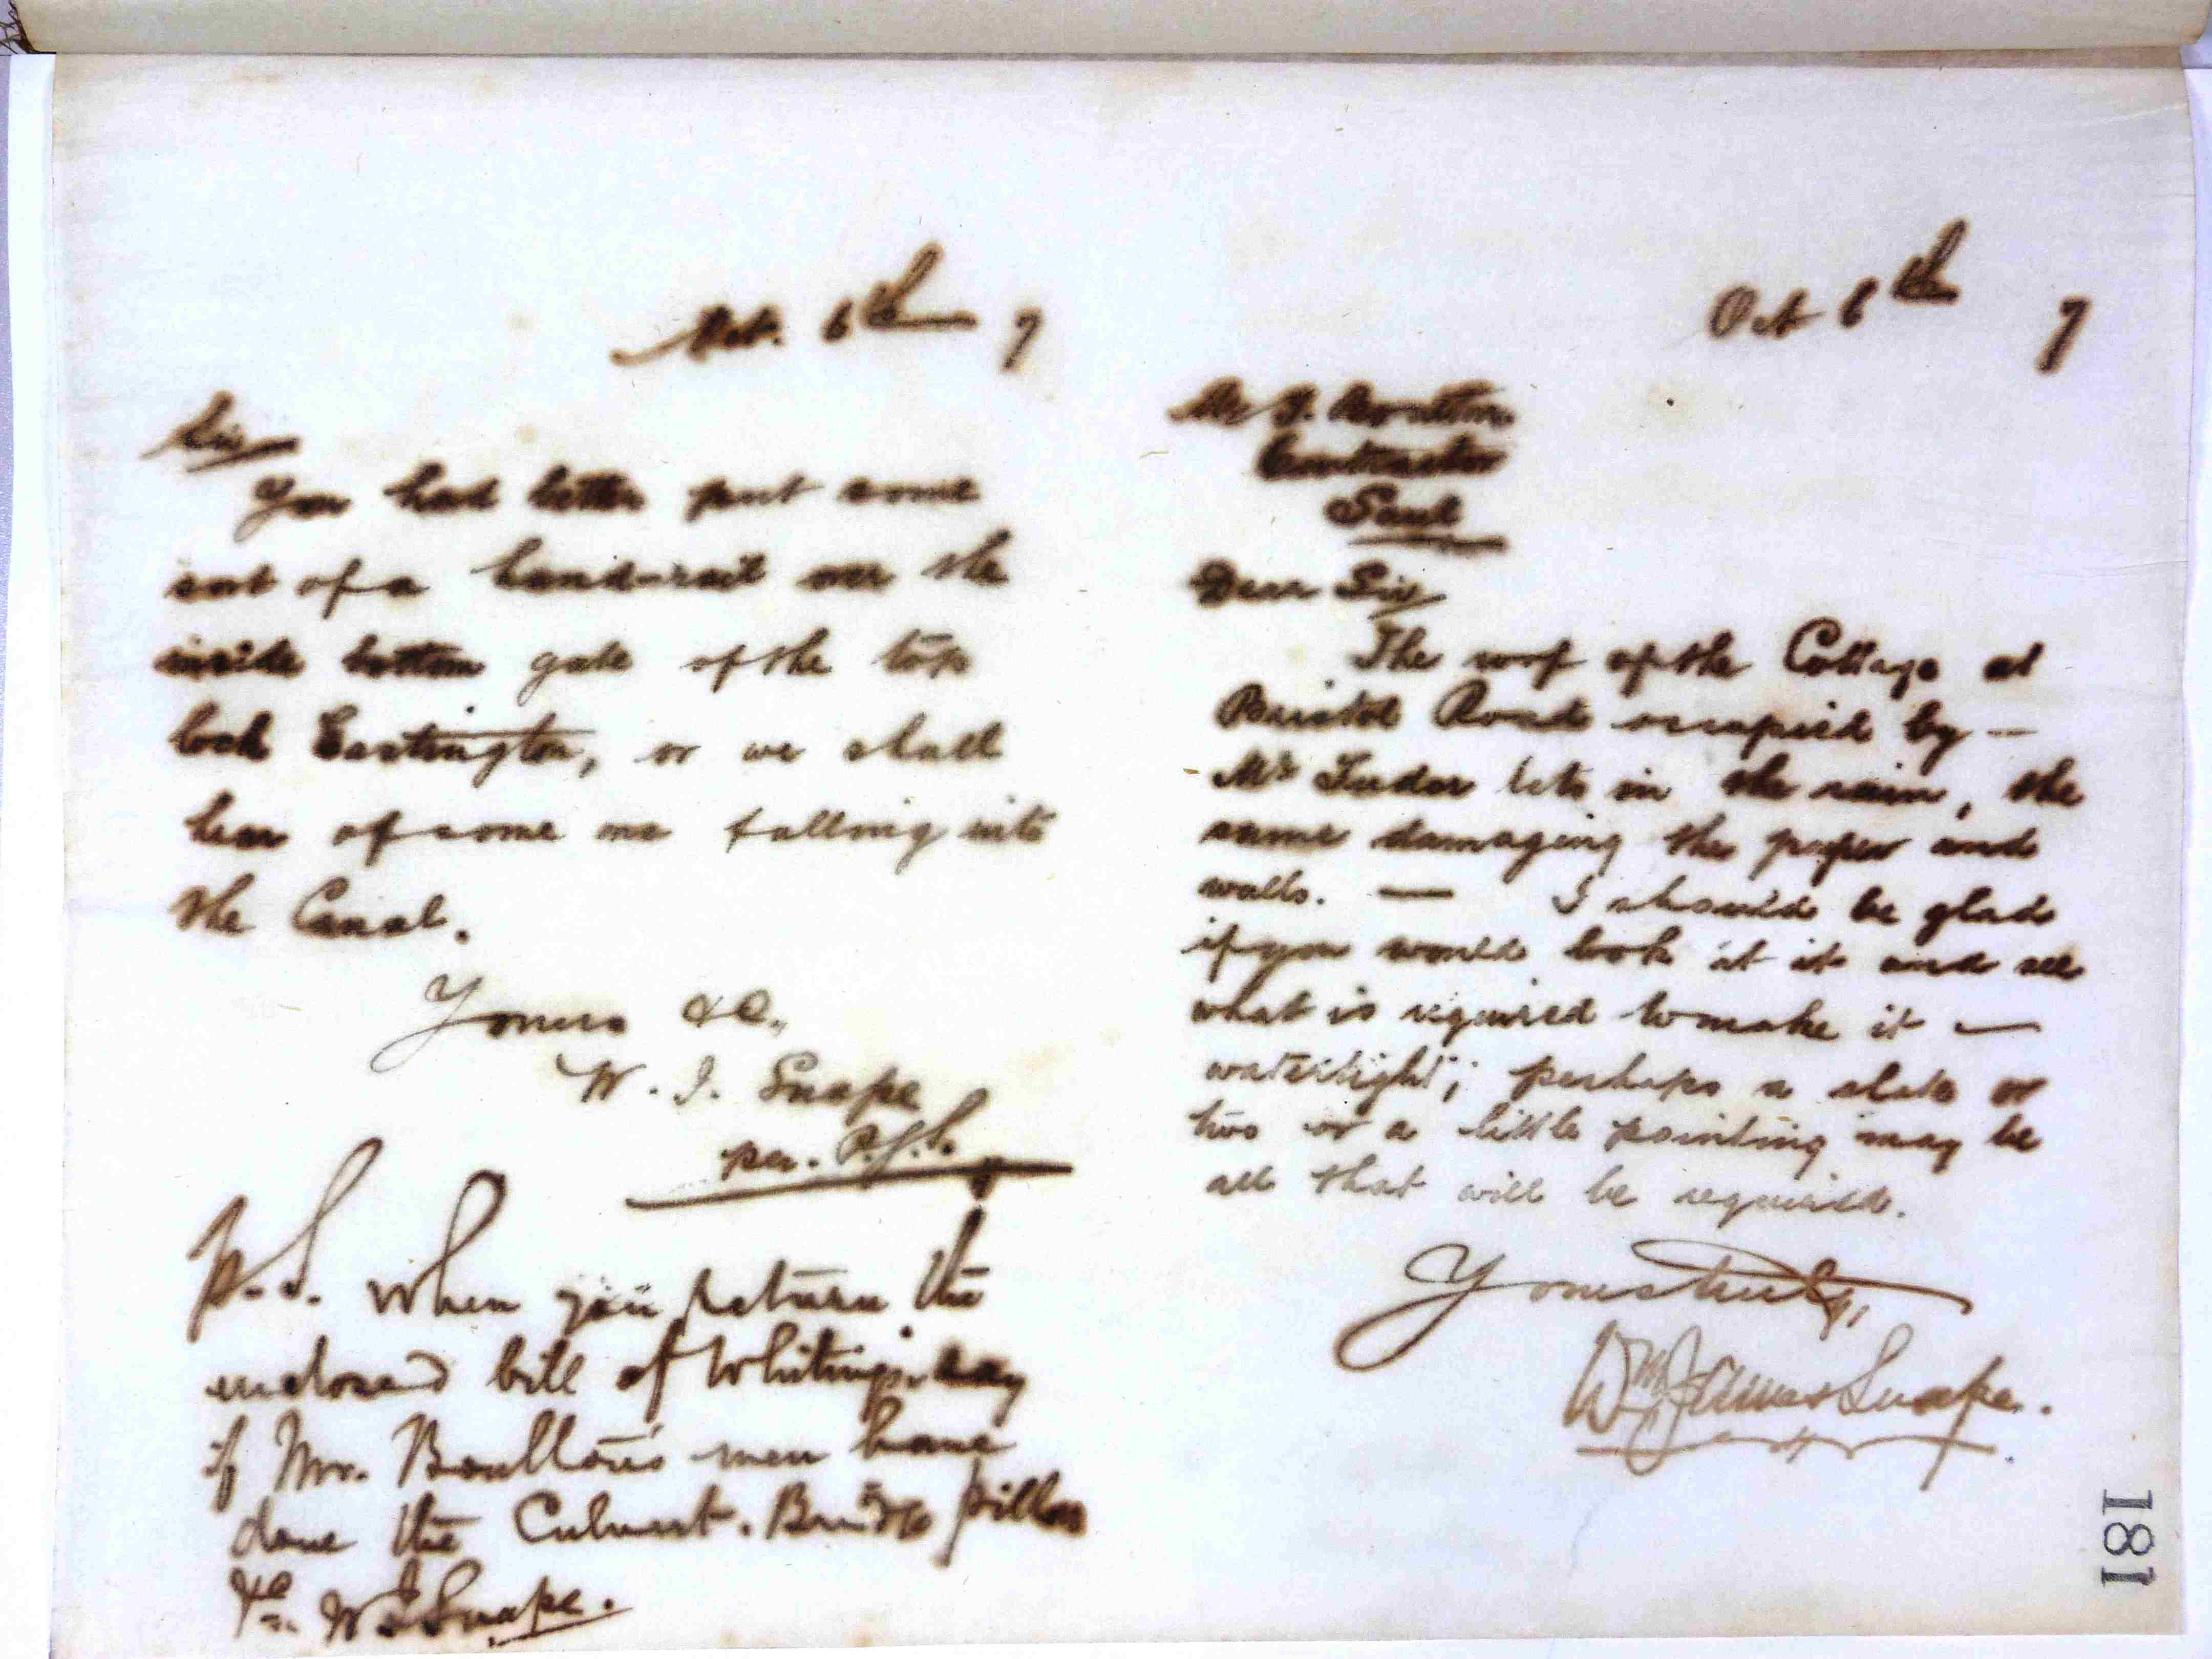 Oct. 6th 7
Sir
You had better put some
sort of a hand-rail over the
inside bottom gate of the top
lock Eastington, or we shall
hear of some one falling into
the Canal.
Yours &c.,
W. J. Snape
per. P.J.S.
P.S. When you return the
enclosed bill of Whitings say
if Mr. Boulton's men have
done the Culvert. Bridge pillar
&c. W J Snape.
Oct 6th 7
Mr J.
Contractor
Saul
Dear Sir
The roof of the Cottage at
Bristol Road occupied by —
Mr Tudor lets in the rain, the
same damaging the paper and
walls. — I should be glad
if you would look at it and see
what is required to make it —
watertight; perhaps a slate or
two or a little pointing may be
all that will be required.
Yours truly,
Wm James Snape.
181